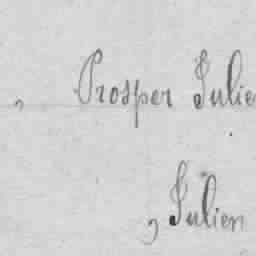 , Prosper Julie
, Julien